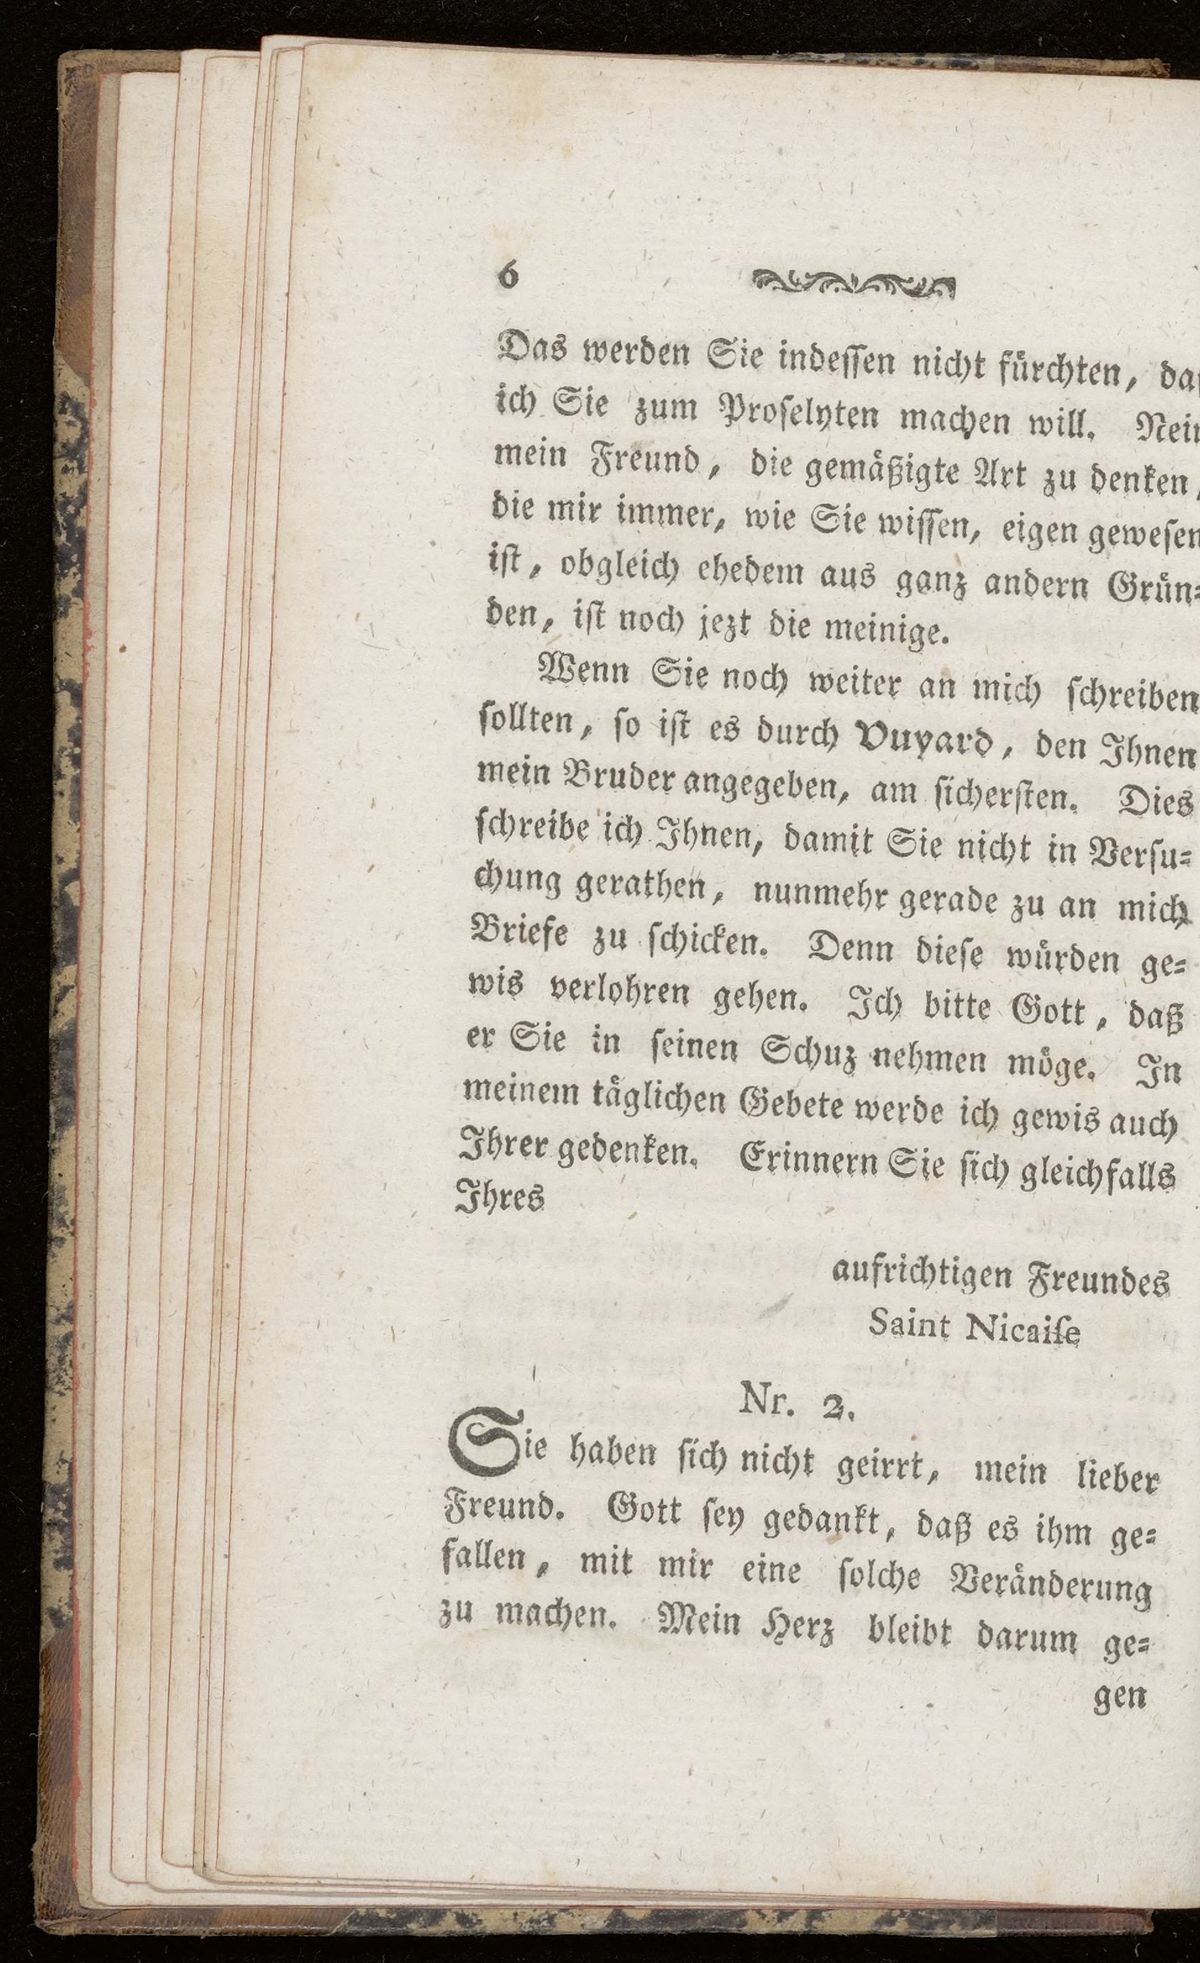 6
Das werden Sie indessen nicht fürchten, daß
ich Sie zum Proselyten machen will. Nein
mein Freund, die gemäßigte Art zu denken,
die mir immer, wie Sie wissen, eigen gewesen
ist, obgleich ehedem aus ganz andern Grün-
den, ist noch jezt die meinige.
Wenn Sie noch weiter an mich schreiben
sollten, so ist es durch Vuyard, den Ihnen
mein Bruder angegeben, am sichersten. Dies
schreibe ich Ihnen, damit Sie nicht in Versu-
chung gerathen, nunmehr gerade zu an mich
Briefe zu schicken. Denn diese würden ge-
wis verlohren gehen. Ich bitte Gott, daß
er Sie in seinen Schuz nehmen möge. In
meinem täglichen Gebete werde ich gewis auch
Ihrer gedenken. Erinnern Sie sich gleichfalls
Ihres
aufrichtigen Freundes
Saint Nicaise
Nr. 2.
Sie haben sich nicht geirrt, mein lieber
Freund. Gott sey gedankt, daß es ihm ge-
fallen, mit mir eine solche Veränderung
zu machen. Mein Herz bleibt darum ge-
gen